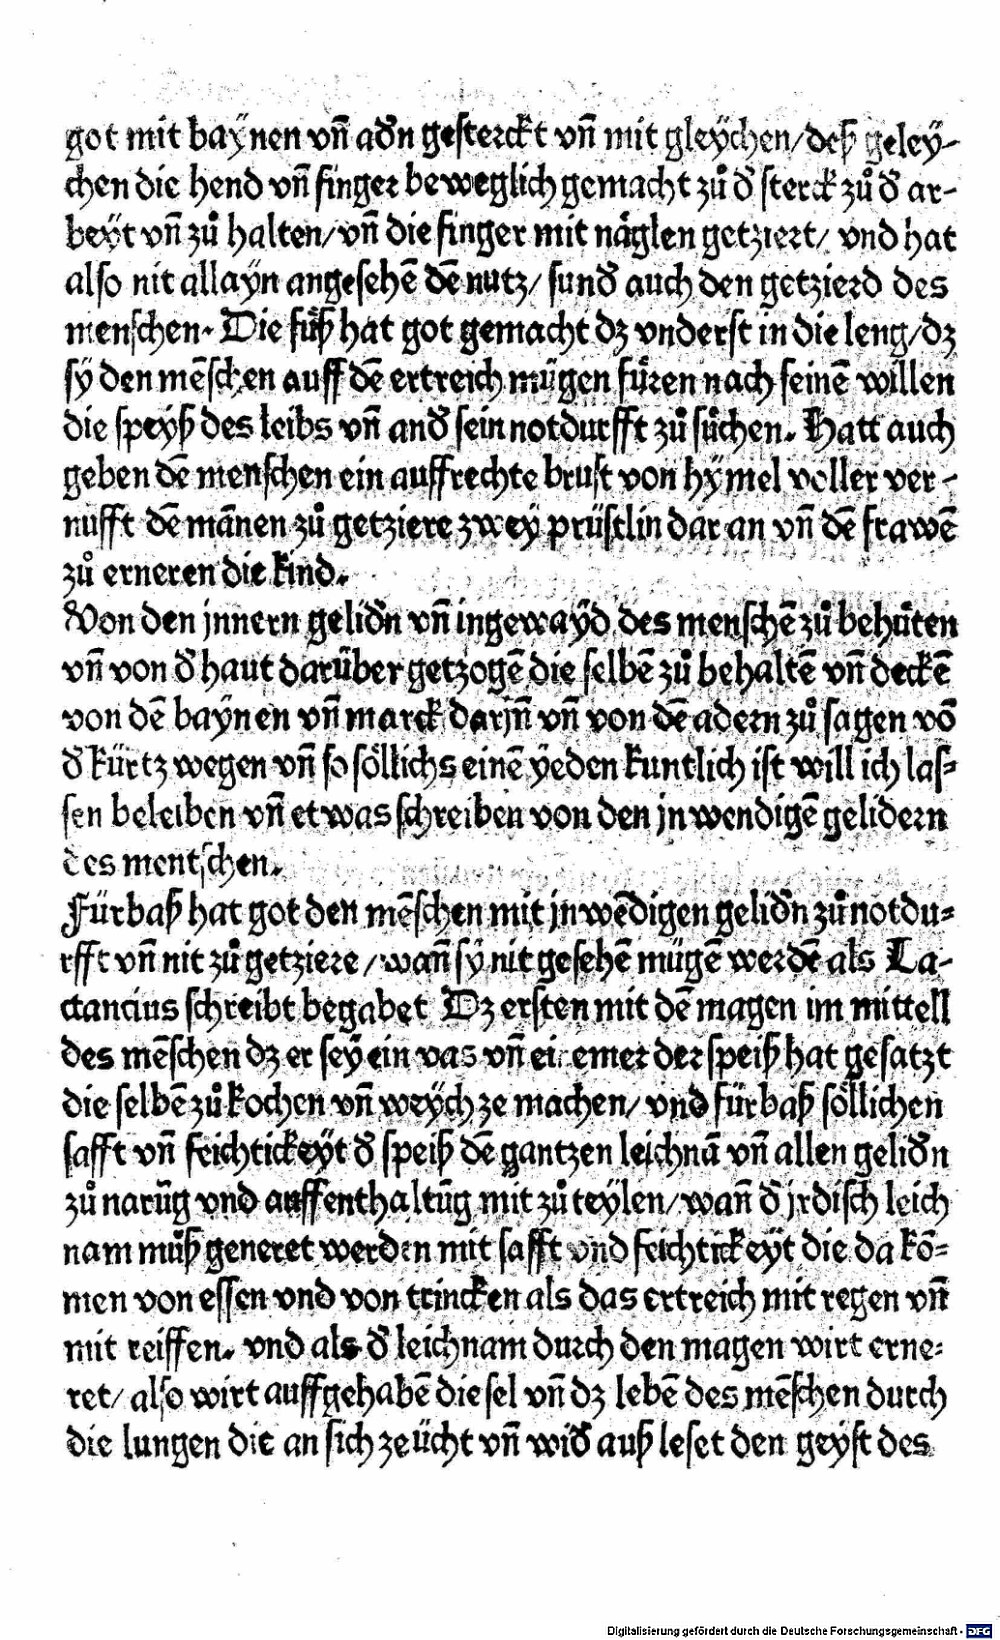 got mit baÿnen vñ adn̄ gesterckt vñ mit gleÿchen/deß geleÿ-
chen die hend vñ finger beweglich gemacht zů đ sterck zů đ ar-
beÿt vñ zů halten/vñ die finger mit näglen getziert/ vnd hat
also nit allaÿn angesehē dē nutz/ sunđ auch den getzierd des
menschen. Die fůß hat got gemacht dz vnderst in die leng/dz
sÿ den mēschen auff dē ertreich mügen fůren nach seinē willen
die speyß des leibs vñ anđ sein notdurfft zů sůchen. Hatt auch
geben dē menschen ein auffrechte brust von hÿmel voller ver-
nufft dē mānen zů getziere zweÿ prüstlin dar an vñ dē frawē
zů erneren die kind.
Von den jnnern gelidn̄ vñ ingewaÿd des menschē zů behůten
vñ von đ haut darüber getzogē die selbē zů behaltē vñ deckē
von dē baÿnen vñ marck darjñ vñ von dē adern zů sagen vō
đ kürtz wegen vñ so söllichs einē ÿeden kuntlich ist will ich las-
sen beleiben vñ etwas schreiben von den jnwendigē gelidern
des mentschen.
Fürbaß hat got den mēschen mit jnwēdigen gelidn̄ zů notdu-
rfft vñ nit zů getziere/wañ sÿ nit gesehē mügē werdē als La-
ctancius schreibt begabet Dz ersten mit dē magen im mittell
des mēschen dz er seÿ ein vas vñ ein emer der speiß hat gesatzt
die selbē zů kochen vñ weÿch ze machen/ vnd fürbaß söllichen
safft vñ feichtickeÿt đ speiß dē gantzen leichnā vñ allen gelidn̄
zů narūg vnd auffenthaltūg mit zů teÿlen/wañ đ jrdisch leich
nam můß generet werden mit safft vnd feichtickeÿt die da kō-
men von essen vnd von trincken als das ertreich mit regen vñ
mit reiffen. vnd als đ leichnam durch den magen wirt erne-
ret/ also wirt auffgehabē die sel vñ dz lebē des mēschen durch
die lungen die an sich zeücht vñ widđ auß leset den geÿst des
Digitalisierung gefördert durch die Deutsche Forschungsgemeinschaft - DFG